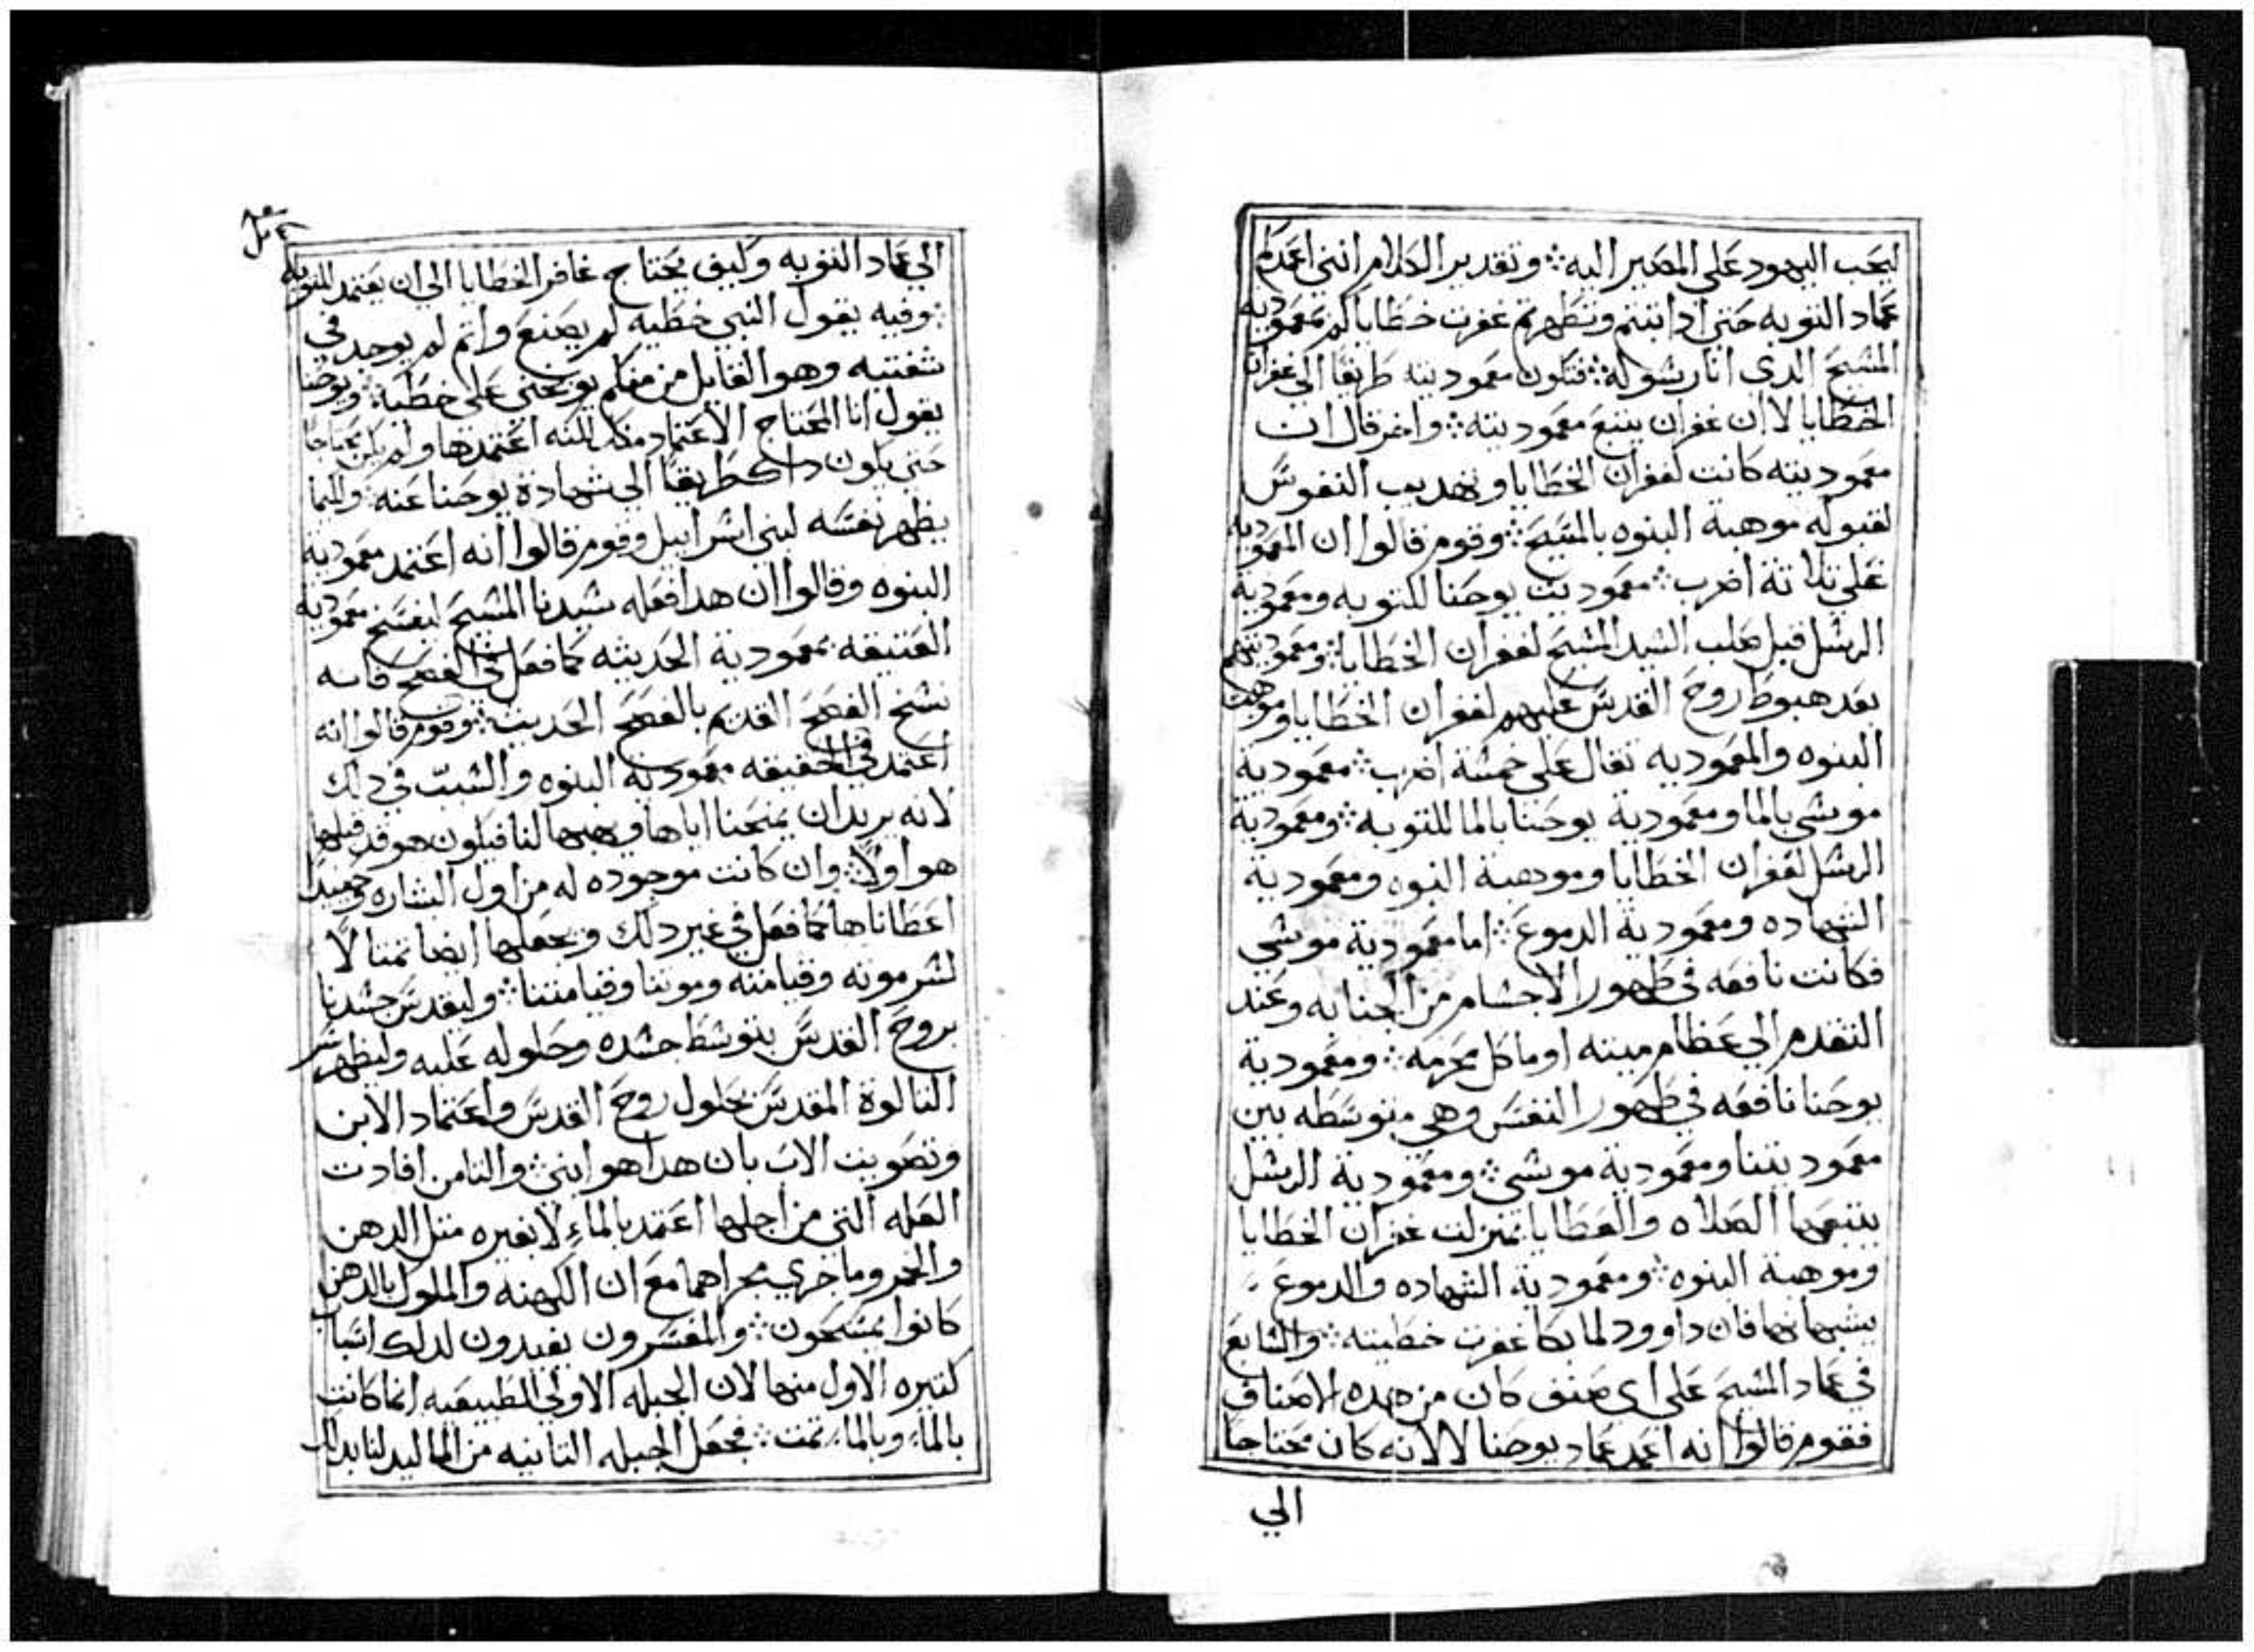 ليحب اليهود على المصير اليه ۞ وتقدير الكلام انني اعمدكم
عماد التوبه حتى ادا تبتم وتطهرتم غفرت خطاياكم بمعمودية
المسيح الدى انا رسوله ۞ فتكون معموديته طريقا الى غفران
الخطايا لا ان غفران يتبع معموديته ۞ واخر قال ان
معموديته كانت لغفران الخطايا وتهديب النفوس
لقبوله موهبة البنوه بالمسيح ۞ وقوم قالوا ان المعموديه
على تلاتة اضرب ۞ معموديت يوحنا للتوبه ومعمودية
الرسل قبل صلب السيد المسيح لغفران الخطايا ۞ ومعموديتهم
بعد هبوط روح القدس عليهم لغفران الخطايا وموهبت
البنوه والمعموديه تقال على خمسة اضرب ۞ معمودية
موسى بالما ومعمودية يوحنا بالما للتوبه ۞ ومعمودية
الرسل لغفران الخطايا وموهبة البنوه ومعمودية
الشهاده ومعمودية الدموع ۞ اما معمودية موسى
فكانت نافعه في طهور الاجسام من الجنابه وعند
التقدم الي عظام ميته او ماكل محرمه ۞ ومعمودية
يوحنا نافعه في طهور النفس وهي متوسطه بين
معموديتنا ومعمودية موسى ۞ ومعمودية الرسل
يتبعها الصلاه والعطايا بمنزلت غفران الخطايا
وموهبة البنوه ۞ ومعمودية الشهاده والدموع
يشبهانها فان داوود لما بكا غفرت خطيته ۞ والسابع
في عماد المسيح على اى صنف كان من هده الاصناف
فقوم قالوا انه اعمد عماد يوحنا لا لانه كان محتاجا
الي
الي عماد التوبه وكيف يحتاج غافر الخطايا الى ان يعتمد للتوبه
۞ وفيه يقول النبي خطيه لم يصنع واتم لم يوجد في
شفتيه وهو القايل من منكم يوبخني على خطية ۞ ويوحنا
يقول انا المحتاج الاعتماد منك لكنه اعتمدها ولم يكن محتاجا
حتى يكون داك طريقا الى شهادة يوحنا عنه ۞ وليما
يظهر نفسه لبني اسراييل وقوم قالوا انه اعتمد معمودية
البنوه وقالوا ان هدا فعله سيدنا المسيح ليفسخ معمودية
العتيقه بمعمودية الحديثه كما فعل في الفصح فانه
نسخ الفصح القديم بالفصح الحديث ۞ وقوم قالوا انه
اعتمد في الحقيقه معمودية البنوه والسبب في دلك
لانه يريد ان يمنحنا اياها ويهبها لنا فيكون هو قد قبلها
هو اولاً ۞ وان كانت موجوده له من اول البشاره وحينيد
اعطاناها كما فعل في غير دلك ويجعلها ايضا تمتالاً
لسر موته وقيامته وموتنا وقيامتنا ۞ وليقدس جسدنا
بروح القدس بتوسط جسده وحلوله عليه وليظهر سر
التالوت المقدس بحلول روح القدس واعتماد الابن
وتصويت الاب بان هدا هو ابني ۞ والتامن افادت
العله التي من اجلها اعتمد بالماء لا بغيره متل الدهن
والخمر وما جرى مجراهما مع ان الكهنه والملوك بالدهن
كانوا يمسحون ۞ والمفسرون يفيدون لدلك اسبابا
كتيره الاول منها لان الجبله الاولى الطبيعيه انما كانت
بالماء وبالماء تمت ۞ فجعل الجبله التانيه من الما ليدلنا بدلك